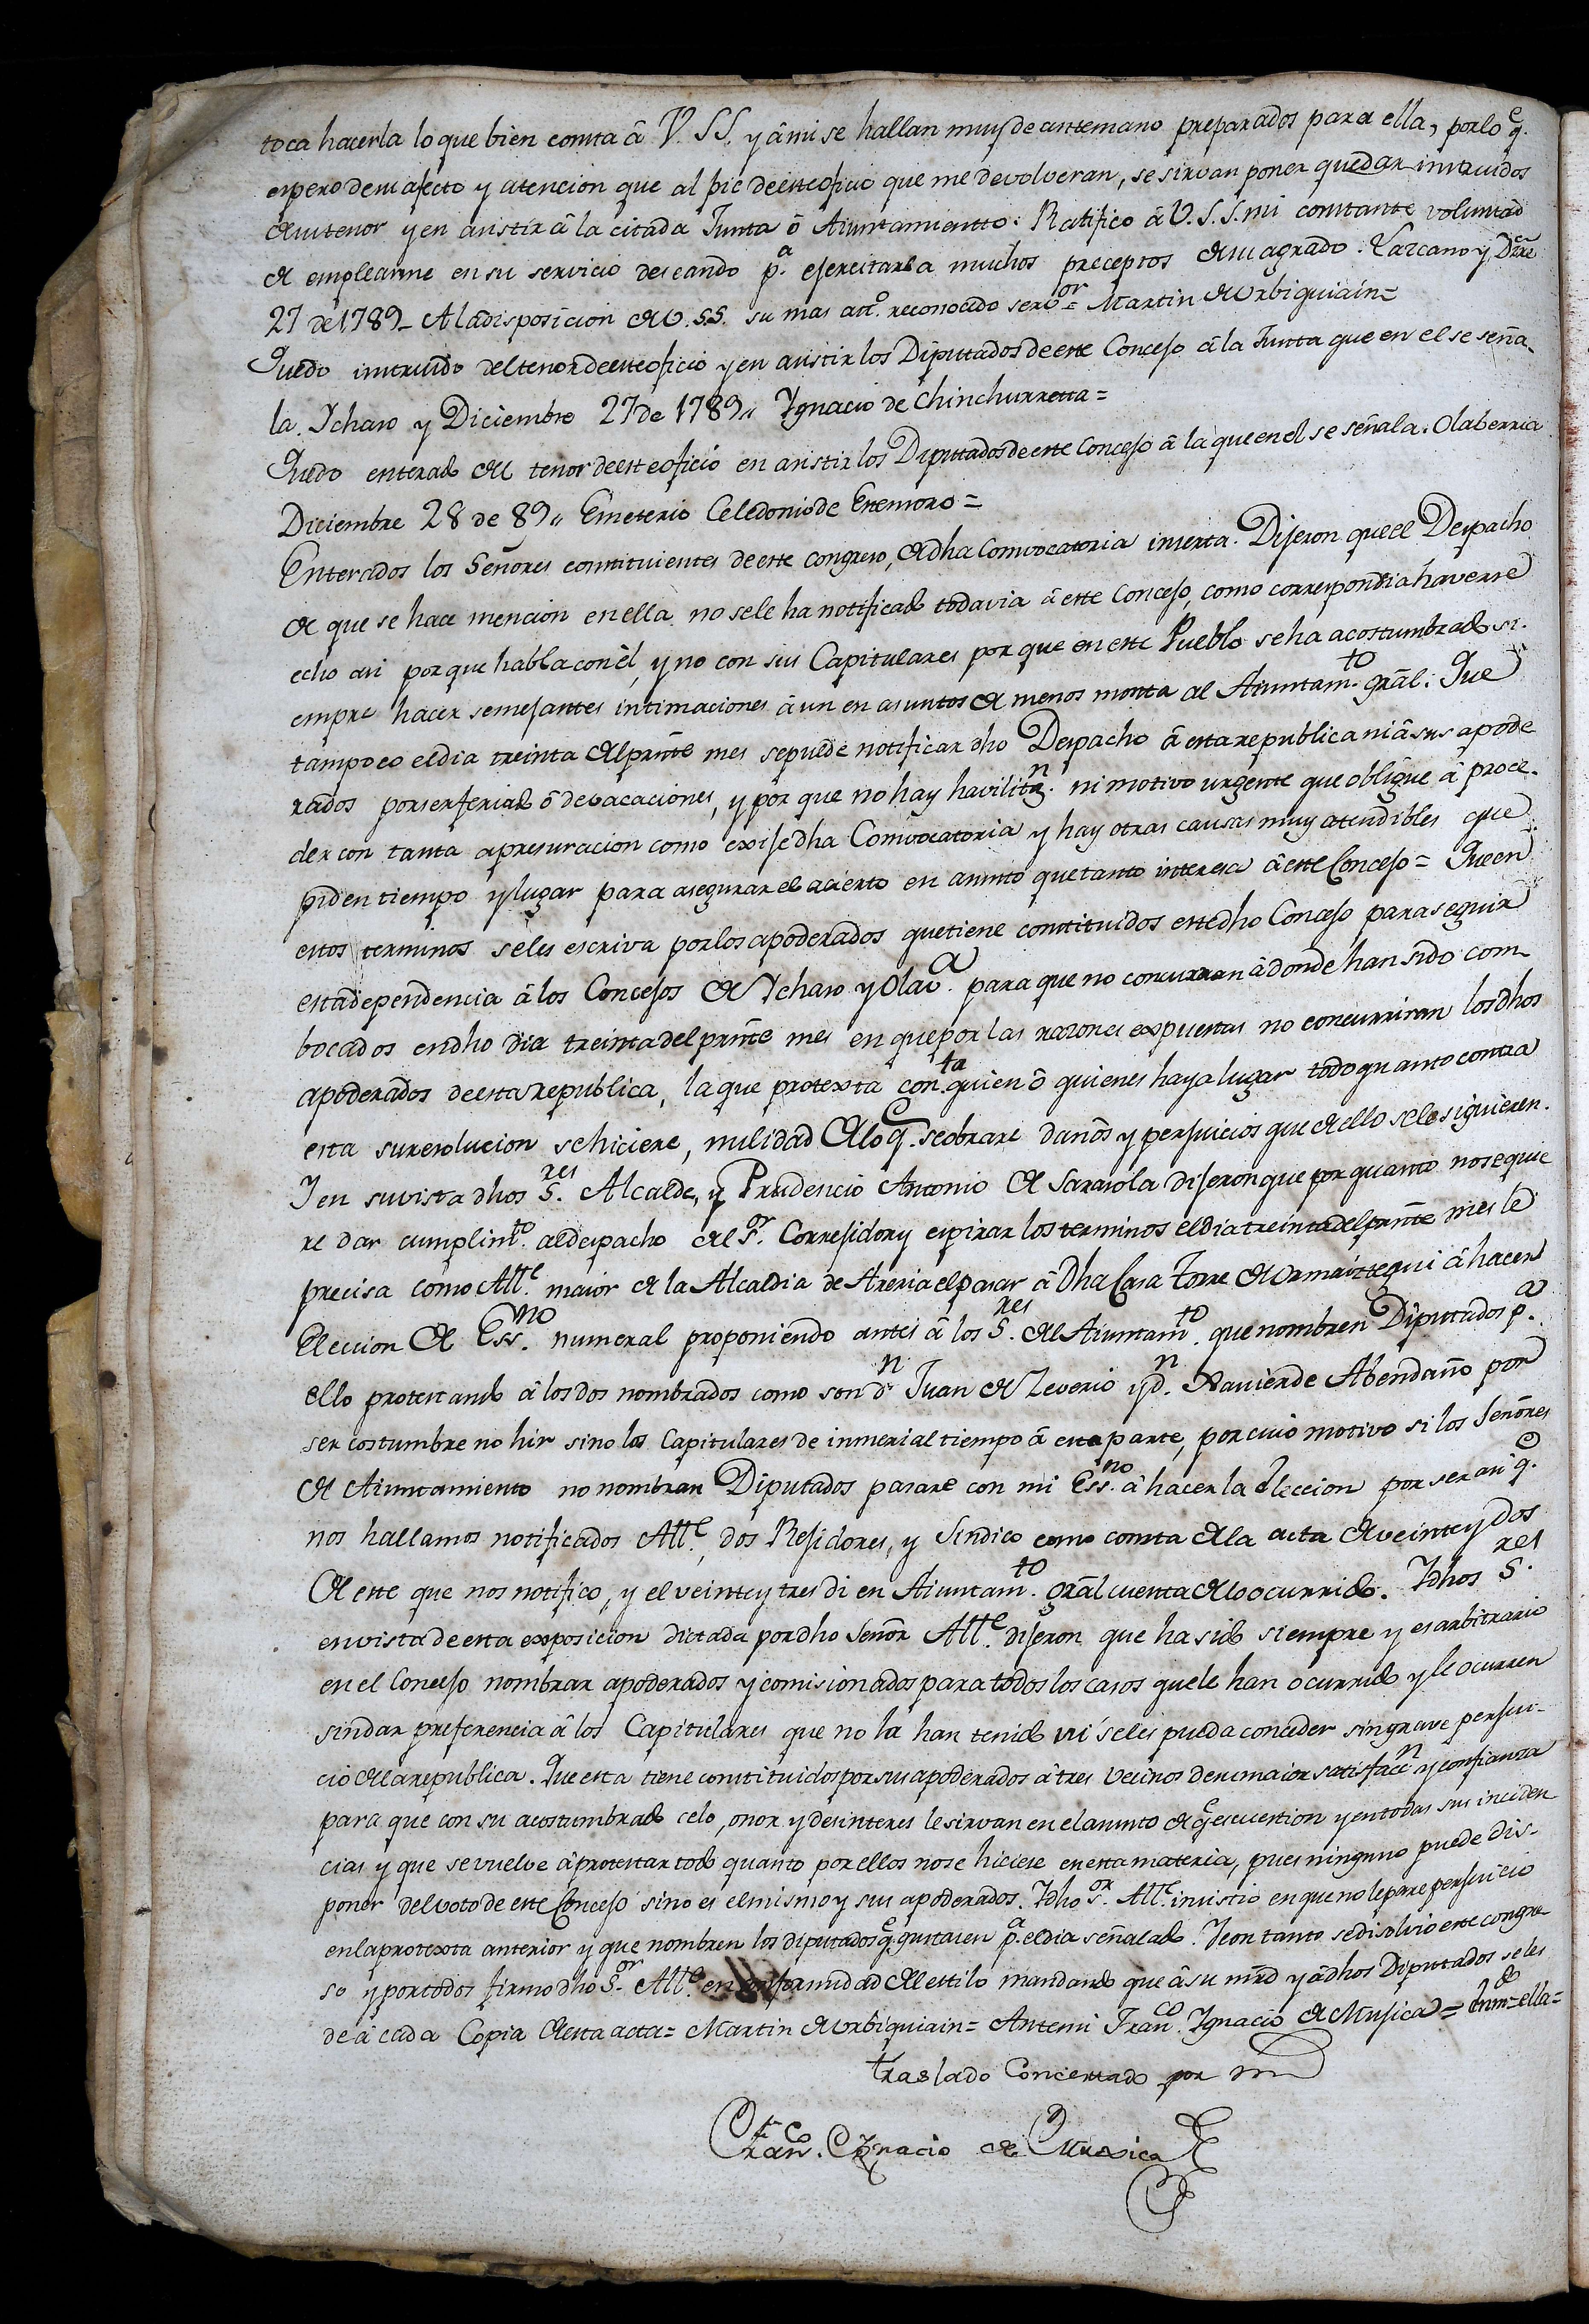 toca hacerla lo que bien consta â V. SS. y âmi se hallan muy de antemano preparados para ella, por lo q.e
espero de su afecto y atencion que al pie de este oficio que me devolveran, se sirvan poner quedar instruidos
de su tenor y en asistir â la citada Junta ô Aiuntamientto: Ratifico â V.S.S. mi constante voluntad
de emplearme en su servicio deseando p.a ejercitarla muchos preceptos de su agrado. Lazcano y Dre
27 de 1789 _ A la disposicion de V.SS. su mas att.o reconocido serv.or = Martin de Urbiquiain =
Quedo instruido del tenor de este oficio y en asistir los Diputados de este Concejo â la Junta que en el se seña-
la. Ychaso y Diciembre 27 de 1789 " Ygnacio de Chinchurretta =
Quedo enterado del tenor de este oficio en asistir los Diputados de este Concejo â la que en el se señala. Olaberria
Diciembre 28 de 89 " Emeterio Celedonio de =
Enterados los Señores constituientes de este congreso, de dha Convocatoria inserta. Dijeron que el Despacho
de que se hace mencion en ella no se le ha notificado todavia â este Concejo, como correspondia haverse
echo asi por que habla con êl, y no con sus Capitulares por que en este Pueblo se ha acostumbrado si-
empre hacer semejantes intimaciones âun en asuntos de menos monta al Aiuntam.to gral: Que
tampoco el dia treinta del prnte mes se puede notificar dho Despacho â esta republica ni â sus apode
rados por ser feriado ô de vacaciones, y por que no hay havilitaz.n ni motivo urgente que obligue â proce-
der con tanta apresuracion como exije dha Convocatoria y hay otras causas muy atendibles que
piden tiempo y lugar para asegurar el acierto en asunto que tanto interesa â este Concejo = Que en
estos terminos se les escriva por los apoderados que tiene constituidos este dho Concejo para seguir
esta dependencia â los Concejos de Ychaso y Olav.a para que no concurran â donde han sido com-
bocados en dho dia treinta del prnte mes en que por las razones expuestas no concurriran los dhos
apoderados de esta republica, la que protexta con.ta quien ô quienes haya lugar todo quanto contra
esta su resolucion se hiciere, nulidad de lo q.e se obrare daños y perjuicios que de ello se le siguieren.
Y en su vista dhos S.res Alcalde, y Prudencio Antonio de Sarasola dijeron que por quanto no se quie
re dar cumplim.to al despacho del S.or Corregidor y espirar los terminos el dia treinta del prnte mes le
precisa como All.e maior de la Alcaldia de Areria el pasar â Dha Casa Torre de Ormaiztegui â hacer
Eleccion de Ess.no numeral proponiendo antes â los S.res del Aiuntam.to que nombren Diputados p.a
ello protestando â los dos nombrados como son d.n Juan de Zeverio y d.n Xavier de Abendaño por
ser costumbre no hir sino los Capitulares de inmerial tiempo â esta parte, por cuio motivo si los Señores
de Aiuntamiento no nombran Diputados pasare con mi Ess.no â hacer la eleccion por ser asi q.e
nos hallamos notificados All.e, dos Regidores, y Sindico como consta de la acta de veinte y dos
de este que nos notifico, y el veinte y tres di en Aiuntam.to gral cuenta de lo ocurrido. Y dhos S.res
en vista de esta exposicion dictada por dho Señor All.e dijeron que ha sido siempre y es arbitrario
en el Concejo nombrar apoderados y comisionados para todos los casos que le han ocurrido y le ocurren
sin dar preferencia â los Capitulares que no la han tenido ni se les pueda conceder sin grave perjui-
cio de la republica. Que esta tiene constituidos por sus apoderados â tres vecinos de su maior satisfacc.n y confianza
para que con su acostumbrado celo, onor y desinteres le sirvan en el asunto de q.e es cuestion y en todas sus inciden
cias y que se vuelve â protestar todo quanto por ellos no se hiciere en esta materia, pues ninguno puede dis-
poner del voto de este Concejo sino es el mismo y sus apoderados. Y dho S.or All.e insistio en que no le pare perjuicio
en la protexta anterior y que nombren los diputados q.e gustasen p.a el dia señalado. Y con tanto se disolvio este congre
so y por todos firmo dho S.or All.e en conformidad del estilo mandando que â su mrd y â dhos Diputados se les
de â cada Copia de esta acta = Martin de Urbiquiain = Ante mi Fran.co Ygnacio de Mujica = enm.do = ella =
traslado Concertado por mi
Fran.co Ygnacio de Muxica